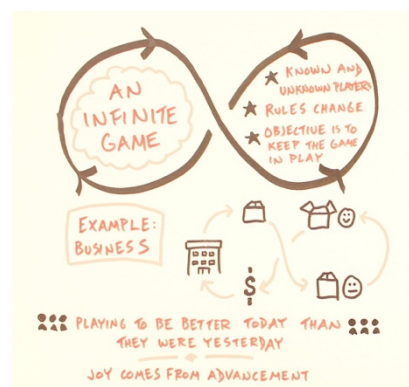 AN
INFINITE
GAME
★ KNOWN AND
UNKNOWN PLAYERS
★ RULES CHANGE
★ OBJECTIVE IS TO
KEEP THE GAME
IN PLAY
EXAMPLE:
BUSINESS
$
PLAYING TO BE BETTER TODAY THAN
THEY WERE YESTERDAY
JOY COMES FROM ADVANCEMENT